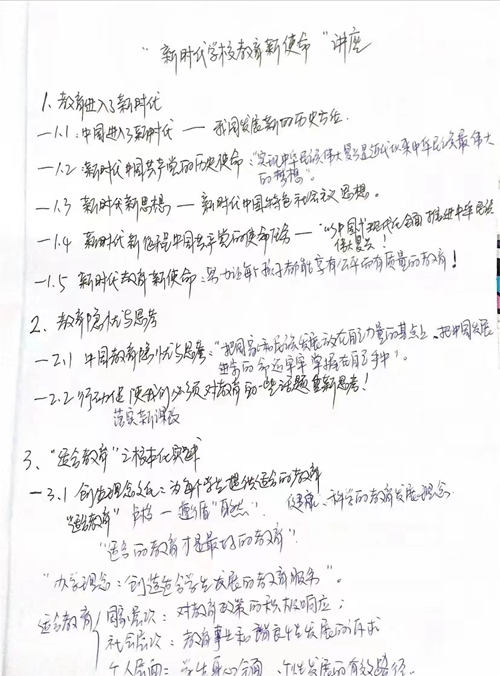 "新时代学校教育新使命"讲座
1. 教育进入了新时代
—1.1 : 中国进入了新时代 — 我国发展新的历史方位.
—1.2 : 新时代中国共产党的历史使命 : "实现中华民族伟大复兴是近代以来中华民族最伟大
的梦想".
—1.3 新时代新思想 — 新时代中国特色社会主义思想.
—1.4 新时代新征程中国共产党的使命任务 — "以中国式现代化全面推进中华民族
伟大复兴!
—1.5 新时代教育新使命 : 努力让每个孩子都能享有公平而有质量的教育!
2. 教育隐忧与思考
—2.1 中国教育隐忧与思考 : "把国家和民族发展放在自己力量的基点上、把中国发展
进步的命运牢牢掌握在自己手中".
—2.2 行动促使我们必须对教育的一些话题重新思考!
落实新课改
3、"适合教育"之校本化实践
—3.1 创生理念文化 : 为每个学生提供适合的教育
"适合教育" — 遵循"自然". 健康、科学的教育发展理念.
"适合的教育才是最好的教育".
"办学理念 : 创造适合学生发展的教育服务".
适合教育 国家层次 : 对教育政策的积极响应;
社会层次 : 教育事业和谐良性发展的诉求
个人层面 : 学生身心全面、个性发展的有效路径.